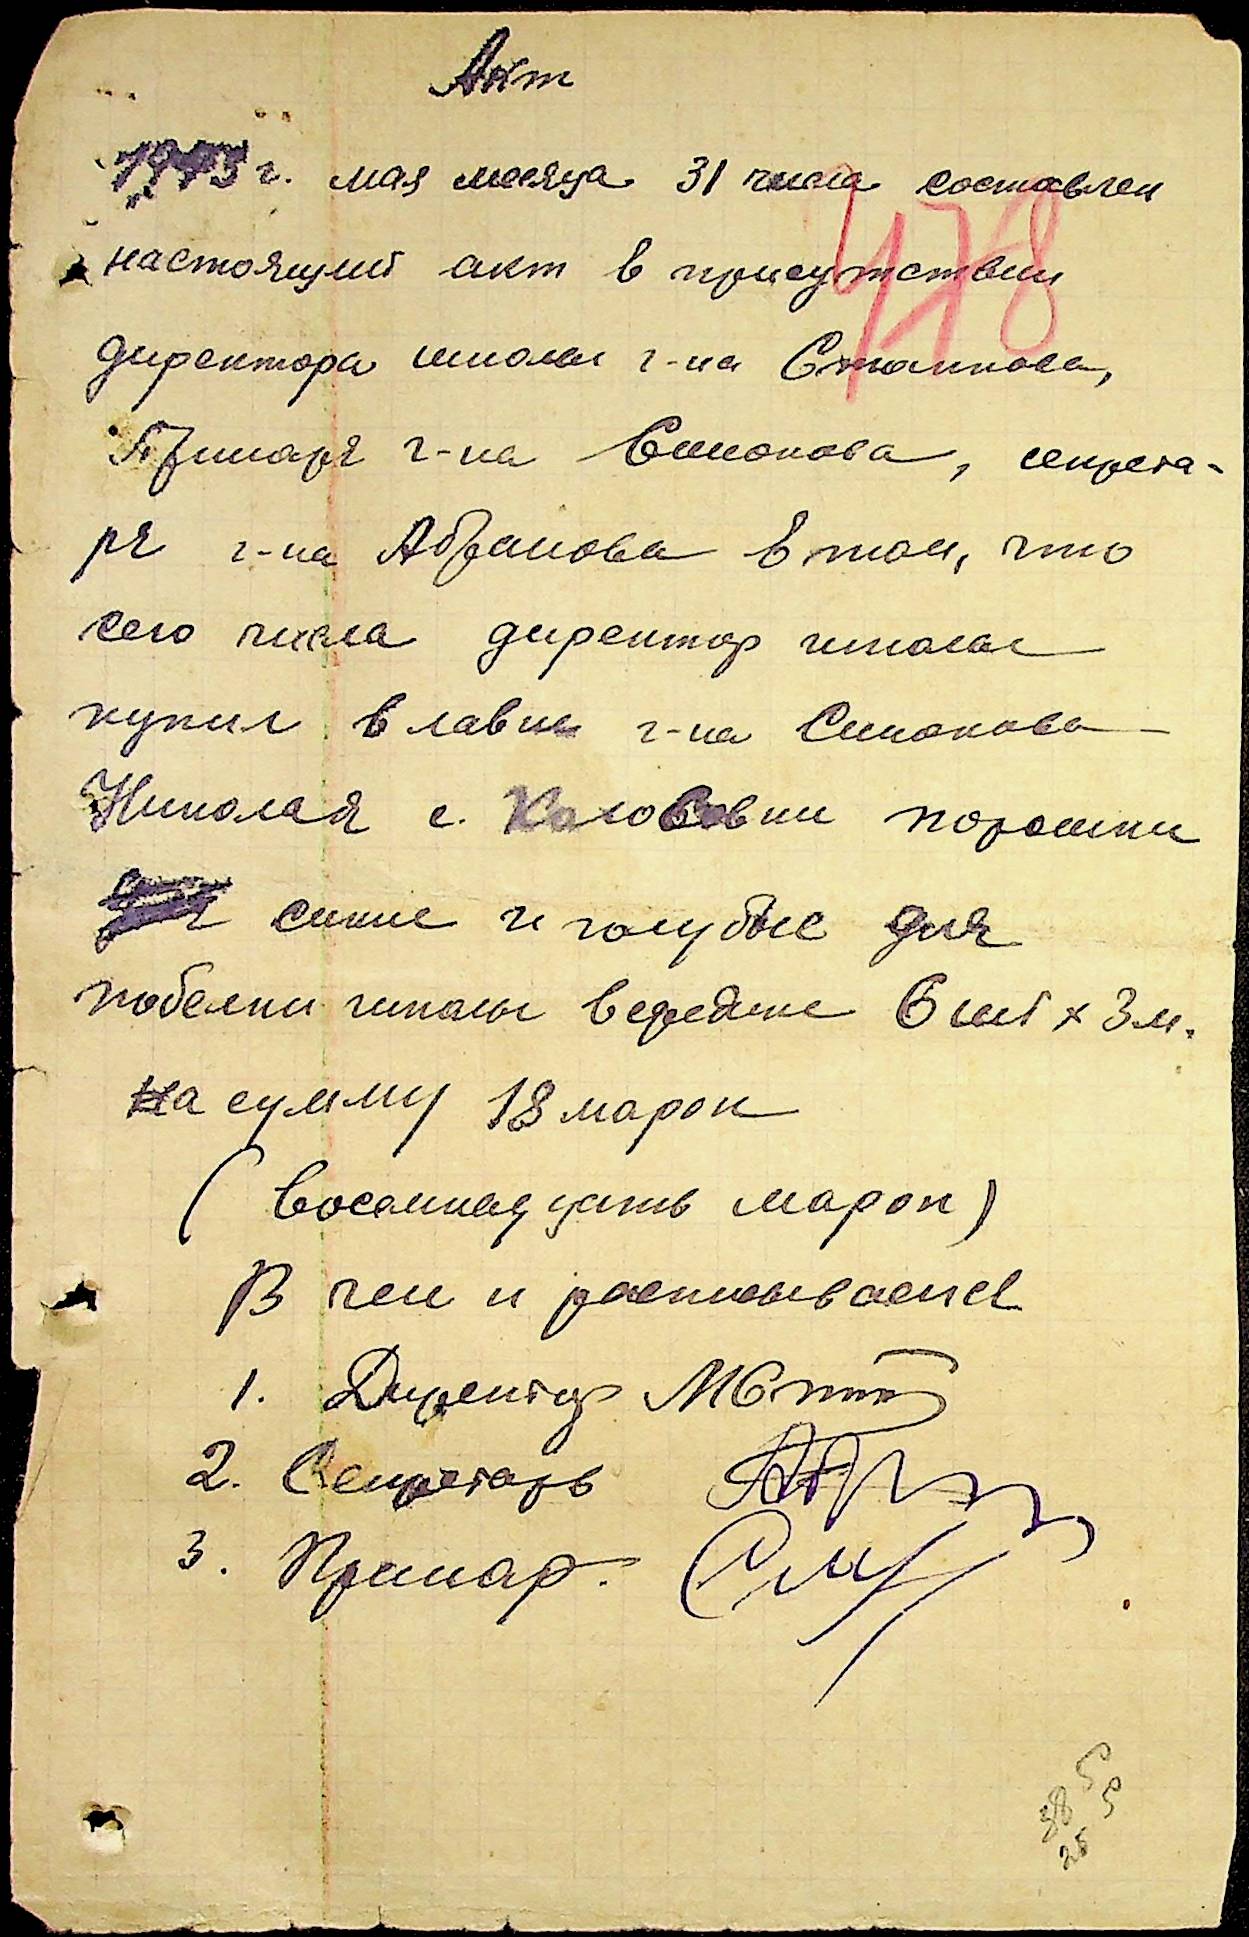 Акт
1943 г. мая месяца 31 числа составлен
478
настоящий акт в присутствии
директора школы г-на Станкова,
Примаря г-на Симонова, секрета-
ря г-на Абрамова в том, что
сего числа директор школы
купил в лавке г-на Симонова
Николая с. порошки
синие и голубые для
побелки школы 6 шт x 3 м.
на сумму 18 марок
(восемнадцать марок)
В чем и расписываемся
1. Директор
2. Секретарь
3. Примар.
5
38 5
25